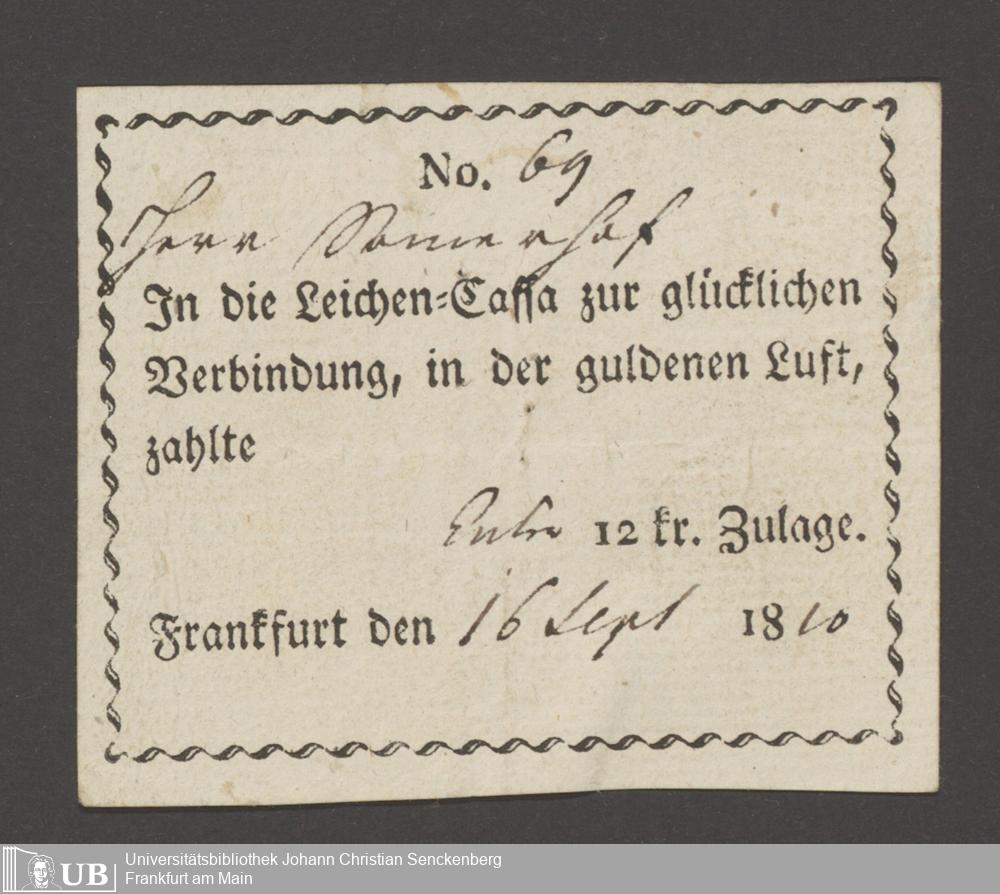 No. 69
Herr Somerhof
In die Leichen=Caſſa zur glücklichen
Verbindung, in der guldenen Luft,
zahlte
12 kr. Zulage.
Frankfurt den 16 Sept 1810
UB
Universitätsbibliothek Johann Christian Senckenberg
Frankfurt am Main